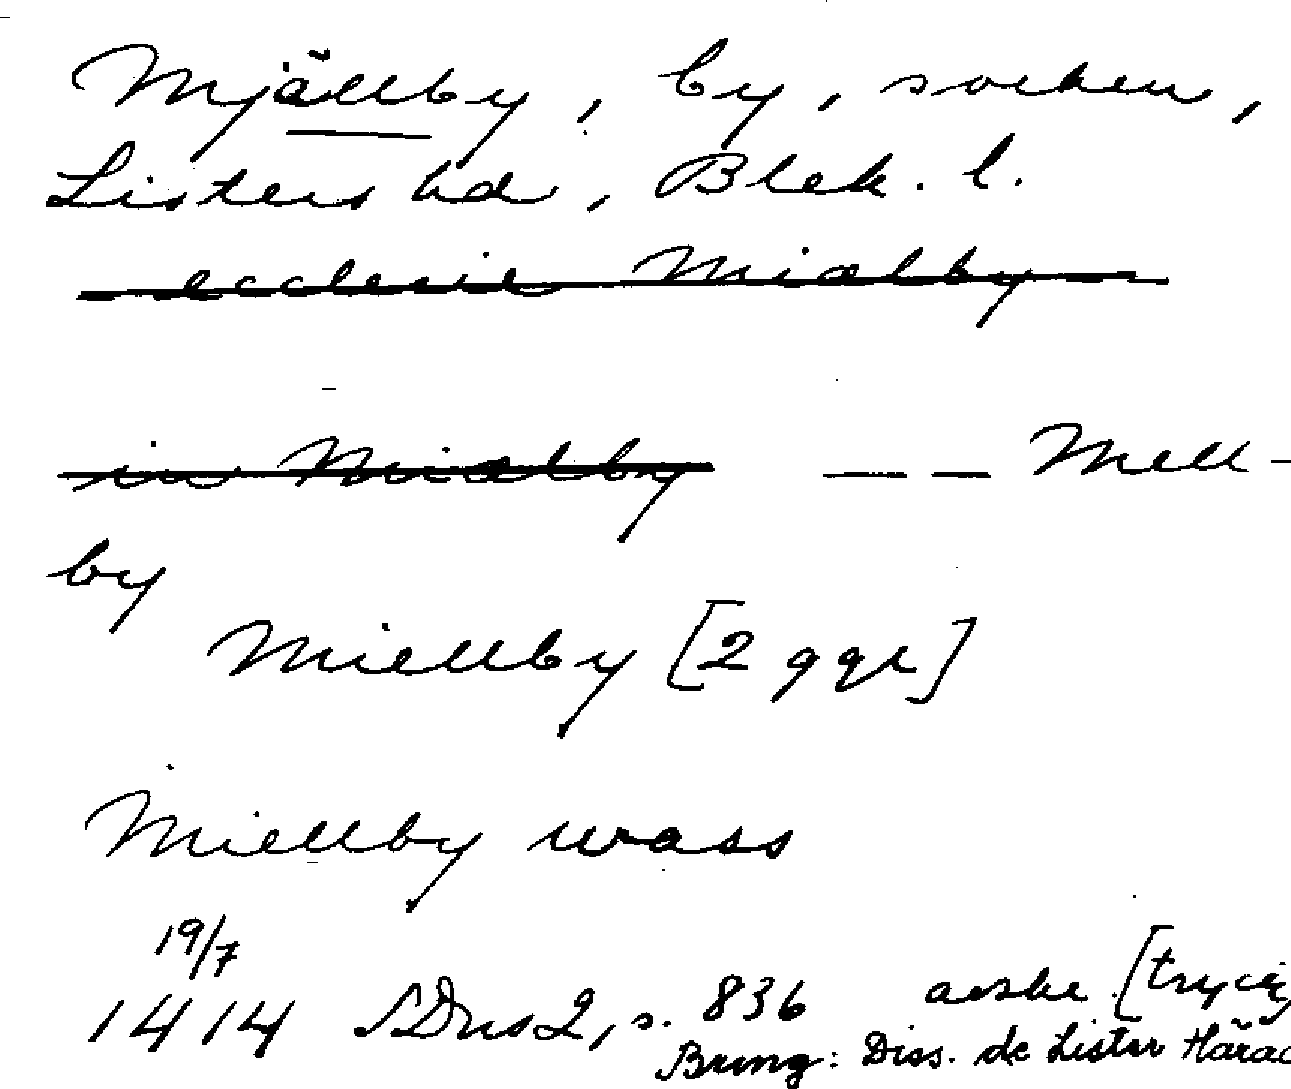 Mjällby, by, socken,
Listers hd, Blek. l.
ecclesie Miælby
in Miælby — — Mell-
by
Miellby [2 ggr]
Miellby wass
19/7
1414 SDns2, s. 836 avskr [tryck
Bring: Diss. de Lister Härad